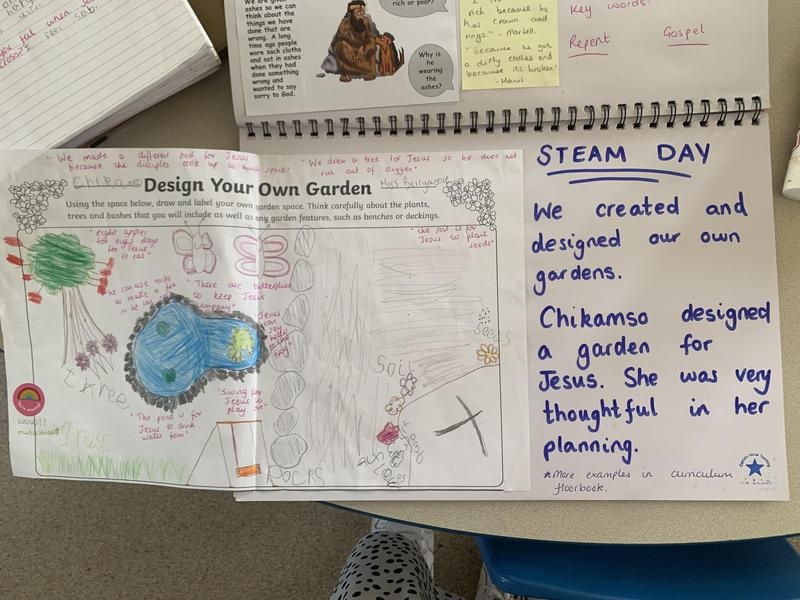 We are given
ashes so we can
think about the
things we have
done that are
wrong. A long
time ago people
wore sack cloths
and sat in ashes
when they had
done something
wrong and
wanted to say
sorry to God.
rich or poor?
Why is
he
wearing
the
ashes?
rich because he
has crown and
rings." - Martell.
"Because he got
a dirty clothes and
because its broken"
Key words:
Repent
Gospel
"We made a different bed for Jesus
because the disciples took up so much space"
"We drew a tree for Jesus so he does not
run out of oxygen"
Chikamso
Miss Bellymour
Design Your Own Garden
Using the space below, draw and label your own garden space. Think carefully about the plants,
trees and bushes that you will include as well as any garden features, such as benches or deckings.
"eight apples
for eight days
for Jesus
to eat"
"the soil is for
Jesus to plant
seeds"
he can use rocks
to make a
so he can
"There are butterflies
to keep Jesus
company"
"Jesus
can
say
hello
to the
frog"
three
"The pond is for
Jesus to drink
water from"
"Swing for
Jesus to
play on"
wow!!
grass
Rocks
Soil
seeds
STEAM DAY
We created and
designed our own
gardens.
Chikamso designed
a garden for
Jesus. She was very
thoughtful in her
planning.
*More examples in curriculum
floorbook.